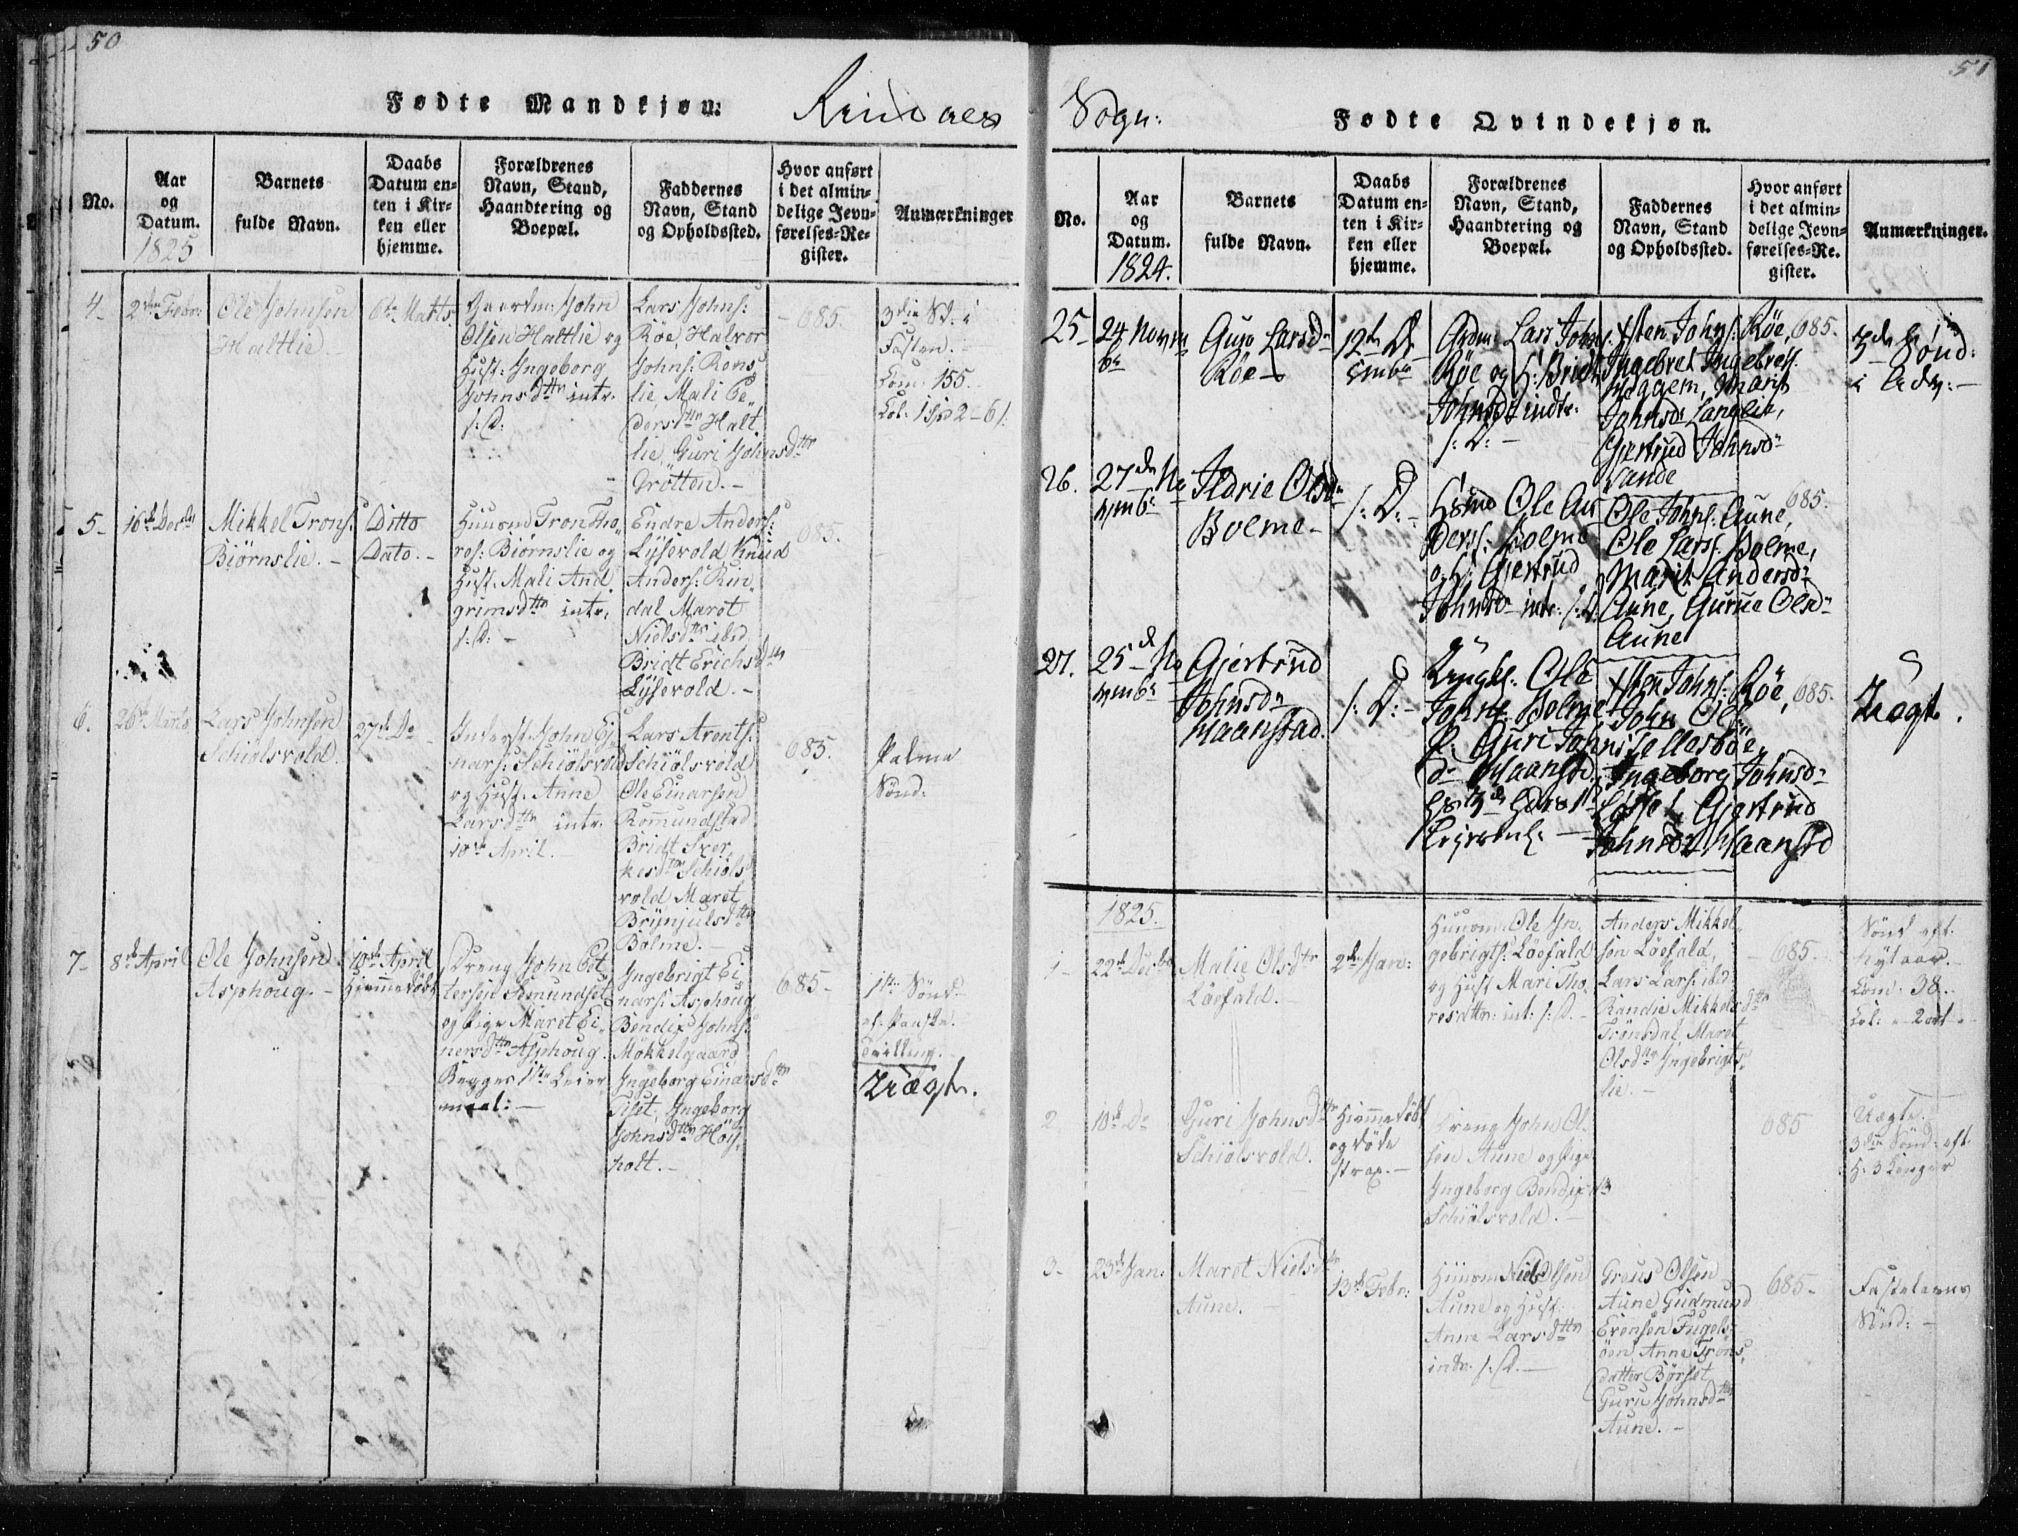 50
Fødte Mandkjøn:
Rindaes
No.
Aar og Datum.
1825
Barnets fulde Navn.
Daabs Datum enten i Kirken eller hjemme.
Forældrenes Navn, Stand, Haandtering og Boepæl.
Faddernes Navn, Stand og Opholdssted.
Hvor anført i det almindelige Jevnførelses-Register.
Anmærkninger
4-
2den Febr:
Ole Johnsen
Halttlie
6te Marts.
Gaardm: John
Olsen Halttlie og
Hust: Ingeborg
Johnsdttr intr.
s: D:
Lars Johns:
Röe, Halvor
Johns: Rons
lie Mali Pe
dersdttr Halt
lie, Guri Johnsdttr
Trötten. -
685.
3die Sd: i
Fasten.
Com: 155.
5-
16de Decbr
Mikkel Trons:
Biörnslie. -
Ditto
Dato. -
Huusmd Tron Tho
res: Biörnslie og
Hust. Mali And
grimsdttr intr.
s: D: -
Endre Anders:
Lysevold Knud
Anders: Rin
dal Maret
Nielsdttr ibid:
Bridt Erichsdttr
Lysevold. -
685.
6.
26de Marts
Lars Johnsen
Schiölsvold.
27de Do
Inderst John Ej
nars: Schiölsvold
og Hust. Anne
Larsdttr intr.
10de April. -
Lars Arents:
Schiölsvold
Ole Einarsen
Romundstad
Bridt Iver
kesdttr Schiöls
vold Maret
Brynjulsdttr
Bolme. -
685.
Palme
Sönd:
7-
8de April
Ole Johnsen
Asphoug. -
10de April
Hiemmedöbt
Dreng John Pet
tersen Romundset
og Pige Maret Ei
nersdttr Asphoug.
Begges 1ste Leier
maal: -
Ingebrigt Ei
nars: Asphoug
Bendix Johns:
Mökkelgaard
Ingeborg Einarsdttr
Tiset, Ingeborg
Johnsdttr Höy
holt. -
685-
1ste Sönd
ef. Paaske.
Tvilling.
Uægte.
51
Sogn:
Fødte Qvindekjøn.
No.
Aar og Datum.
1824.
Barnets fulde Navn.
Daabs Datum enten i Kirken eller hjemme.
Forældrenes Navn, Stand, Haandtering og Boepæl.
Faddernes Navn, Stand og Opholdssted.
Hvor anført i det almindelige Jevnførelses-Register.
Anmærkninger.
25-
24 Novem
br
Guro Larsdr
Röe -
12te De
cembr
Grdm: Lars Johns.
Röe og H: Bridt
Johnsdr indtr:
s: D: -
Sten Johns: Röe,
Ingebret Ingebrets.
Heggem, Marit
Johnsdr Langlie,
Gjertrud Johnsdr
Sande
685.
3de Sönd:
i Adv: -
26.
27de No
vembr
Ildrie Olsdr
Bolme -
s: D: -
Hsmd Ole An
ders: Bolme
og H: Gjertrud
Johnsdr intr: s: D.
Ole Johns: Aune,
Ole Lars: Bolme,
Marit Andersdr
Aune, Gurue Olsdr
Aune
685.
27.
25de No
vembr
Gjertrud
Johnsdr
Maanstad.
s: D: -
Ungkl: Ole
Johns: Bolme
P: Guri Johns
dr Maanstd.
Sten Johns: Röe,
John Ols
Sellesböe,
Ingeborg Johnsdr
Gjertrud
Johnsdr Maanstd
685.
Uægt.
1825.
1-
22de Decbr
Malie Olsdtr
Löefald.
2den Jan:
Huusmd Ole In
gebrigts: Löefald
og Hust Mari Tho
resdttr: int: s: D. -
Anders Mikkel
sen Löefald,
Lars Lars: ibid
Randie Mikkelsdttr
Tronsdal, Maret
Olsdttr Ingebrigts
lie. -
685.
Sönd eft.
Nytaar. -
Com: 38.
2
10de Do
Guri Johnsdttr
Schiölsvold.
Hiemmedöbt
og döde
strax. -
Dreng John Ol
sen Aune og Pige
Ingeborg Bendix
Schiölsvold. -
685
Uægte.
3die Sönd: eft.
H: 3 Konger
3-
23de Jan:
Maret Nielsdttr
Aune. -
13de Febr:
Huusmd Niels Olsen
Aune og Hust:
Anne Larsdttr
intr. s: D. -
Graus Olsen
Aune Gudmund
Evensen Fugels
öen Anne Trons
datter Börset
Guru Johnsdttr
Aune. -
685-
Fastelavns
Sönd: -